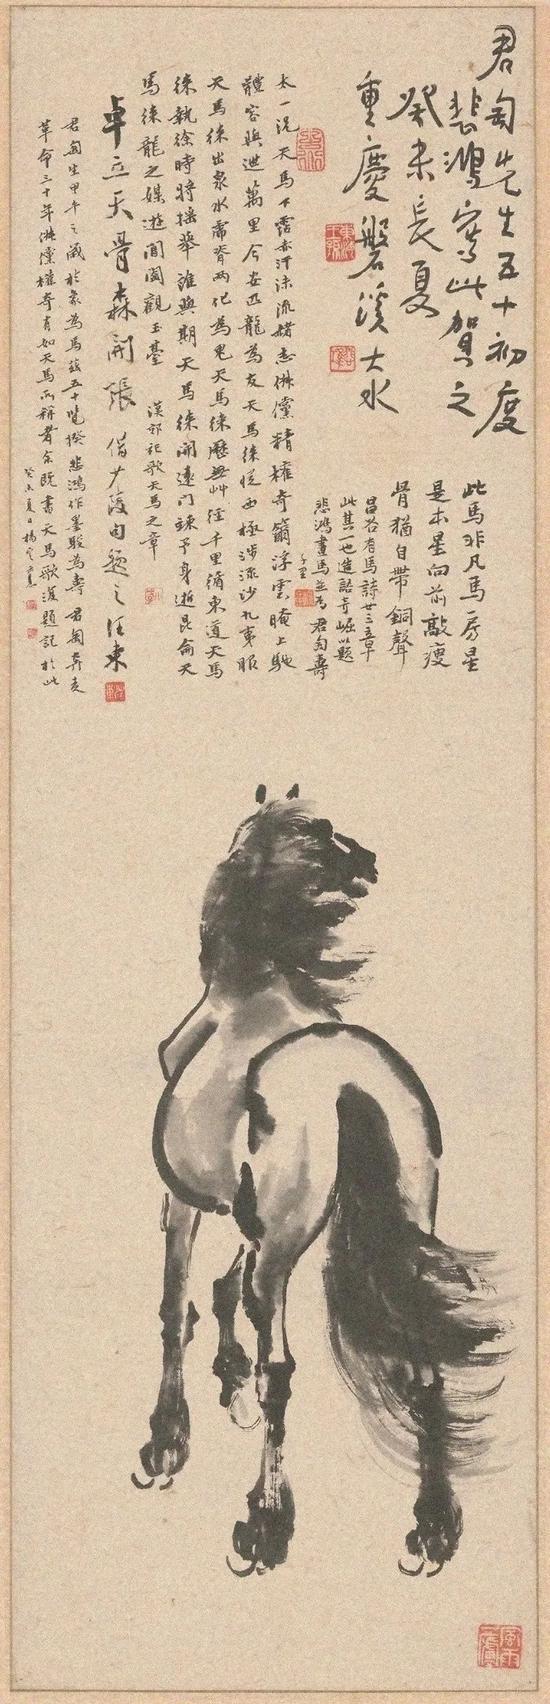 君匋先生五十初度
悲鴻寫此賀之
癸未長夏
重慶磐溪大水
此馬非凡馬房星
是本星向前敲瘦
骨猶自帶銅聲
昌谷有馬詩廿三章
此其一也造語奇崛以題
悲鴻畫馬並為君匋壽
太一況天馬下霑赤汗沫流赭志俶儻精權奇籋浮雲晻上馳
體容與迣萬里今安匹龍為友天馬徠從西極涉流沙九夷服
天馬徠出泉水虎脊兩化為鬼天馬徠歷無艸徑千里循東道天馬
徠執徐時將搖舉誰與期天馬徠開遠門竦予身逝昆侖天
馬徠龍之媒遊閶闔觀玉臺 漢郊祀歌天馬之章
卓立天骨森開張 借少陵句題之 汪東
君匋生甲午之歲於象為馬茲五十覽揆悲鴻作墨駿為壽君匋奔走
革命三十年俶儻權奇有如天馬所稱者余既書天馬歌復題記於此
癸未夏日楊